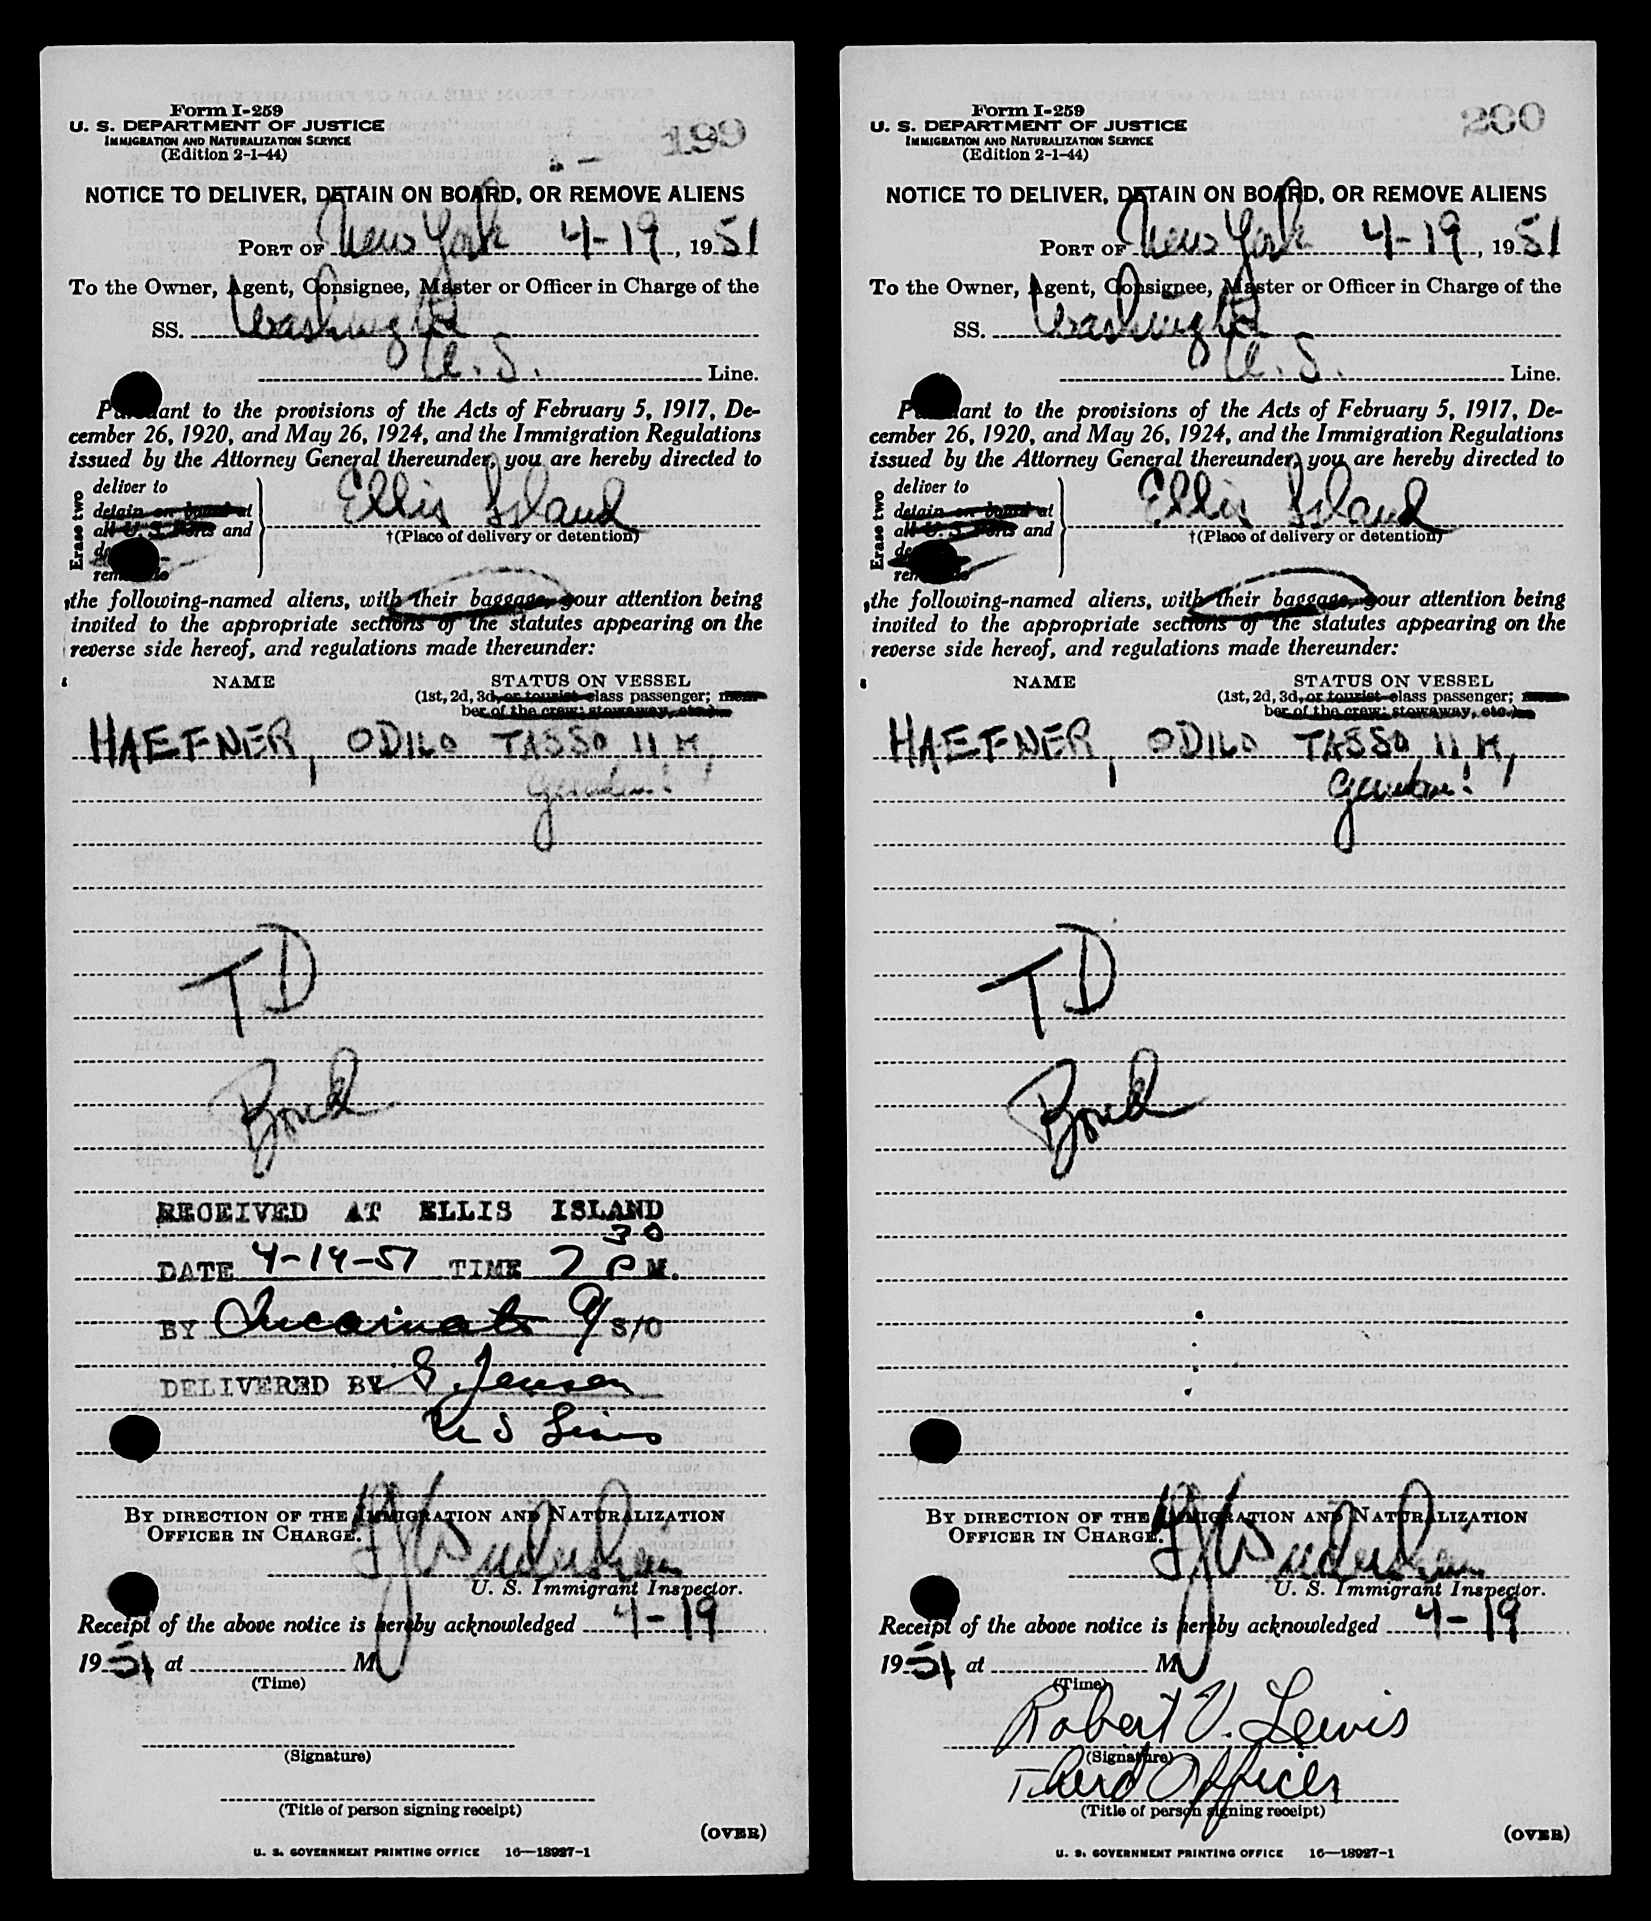 Form I-259
U. S. DEPARTMENT OF JUSTICE
IMMIGRATION AND NATURALIZATION SERVICE
(Edition 2-1-44)
199
NOTICE TO DELIVER, DETAIN ON BOARD, OR REMOVE ALIENS
PORT OF New York 4-19, 1951
To the Owner, Agent, Consignee, Master or Officer in Charge of the
SS. Washington
U.S. Line.
Pursuant to the provisions of the Acts of February 5, 1917, De-
cember 26, 1920, and May 26, 1924, and the Immigration Regulations
issued by the Attorney General thereunder, you are hereby directed to
Erase two
deliver to
detain on board at
all U. S. Ports and
Ellis Island
†(Place of delivery or detention)
the following-named aliens, with their baggage, your attention being
invited to the appropriate sections of the statutes appearing on the
reverse side hereof, and regulations made thereunder:
NAME STATUS ON VESSEL
(1st, 2d, 3d, or tourist class passenger; mem-
ber of the crew; stowaway, etc.)
HAEFNER, ODILO TASSO 11 M,
TD
Bond
RECEIVED AT ELLIS ISLAND
DATE 4-19-51 TIME 7 30 P M.
BY Incarnato S/O
DELIVERED BY S. Jensen
U S Lines
BY DIRECTION OF THE IMMIGRATION AND NATURALIZATION
OFFICER IN CHARGE.
U. S. Immigrant Inspector.
Receipt of the above notice is hereby acknowledged 4-19
1951 at M
(Time)
(Signature)
(Title of person signing receipt)
(OVER)
U. S. GOVERNMENT PRINTING OFFICE 16—18927-1
Form I-259
U. S. DEPARTMENT OF JUSTICE
IMMIGRATION AND NATURALIZATION SERVICE
(Edition 2-1-44)
200
NOTICE TO DELIVER, DETAIN ON BOARD, OR REMOVE ALIENS
PORT OF New York 4-19, 1951
To the Owner, Agent, Consignee, Master or Officer in Charge of the
SS. Washington
U.S. Line.
Pursuant to the provisions of the Acts of February 5, 1917, De-
cember 26, 1920, and May 26, 1924, and the Immigration Regulations
issued by the Attorney General thereunder, you are hereby directed to
Erase two
deliver to
detain on board at
all U. S. Ports and
Ellis Island
†(Place of delivery or detention)
the following-named aliens, with their baggage, your attention being
invited to the appropriate sections of the statutes appearing on the
reverse side hereof, and regulations made thereunder:
NAME STATUS ON VESSEL
(1st, 2d, 3d, or tourist class passenger; mem-
ber of the crew; stowaway, etc.)
HAEFNER, ODILO TASSO 11 M,
TD
Bond
BY DIRECTION OF THE IMMIGRATION AND NATURALIZATION
OFFICER IN CHARGE.
U. S. Immigrant Inspector.
Receipt of the above notice is hereby acknowledged 4-19
1951 at M
(Time)
Robert V. Lewis
(Signature)
Third Officer
(Title of person signing receipt)
(OVER)
U. S. GOVERNMENT PRINTING OFFICE 16—18927-1